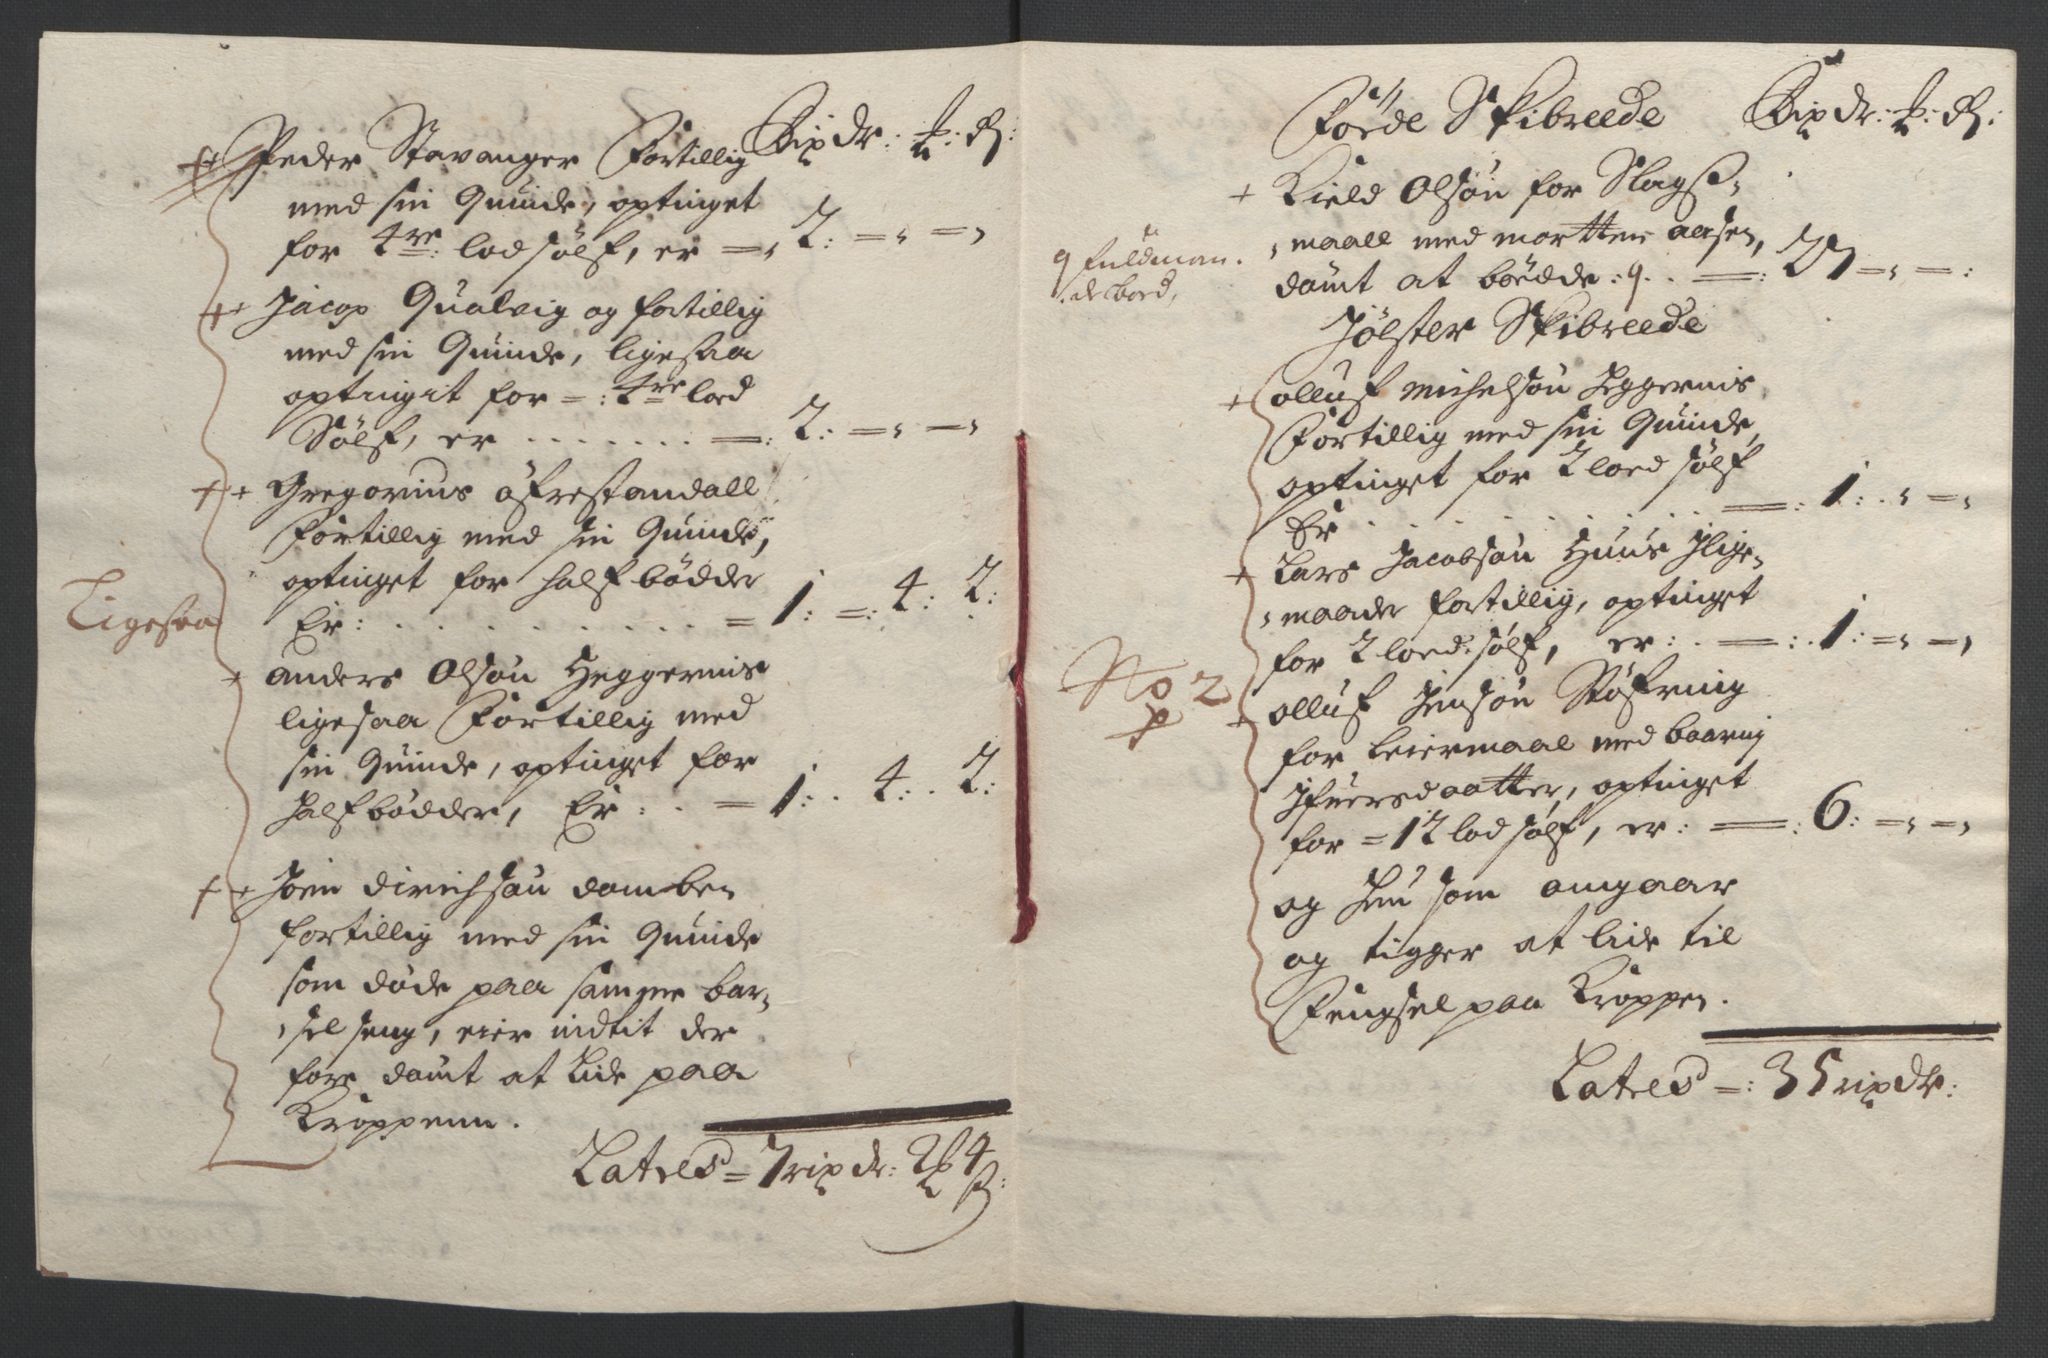 Peder Stavanger Fortillig Rixdr: ℔: ß:
med sin Quinde, optinget
for 4re: lod sølf, er =, 2: =, =,
Jacop Qualvig og fortillig
med sin Quinde, ligesaa
optingit for =: 4re lod
Sølf, er . . . . . . . =: 2: =, =,
Gregorius øfrestandall
Fortillig med sin Quinde,
optinget for half bødder
Er: . . . . . . . . = 1: =: 4: 2:
Ligesaa
anders Olsøn Heggernis
ligesaa Fortillig med
sin Quinde, optinget for
halfbødder, Er: . . = 1: . 4: . 2:
Joen dirichsøn damben
fortillig med sin Quinde
som døde paa samme bar-
selseng, eier indtit der
fore dømt at Lide paa
Kroppenn.
Lateris = 7 rixdr: 2 ℔ 4 ß:
Førde Skibreede Rixdr: ℔: ß:
Kield Olsøn for Slagß-
maall med mortten aasen,
dømt at bødde: 9. . =: 27 =, =:
9 fuldman.
Jølster Skibreede
olluf michelsøn Heggernis
Fortillig med sin Quinde,
optinget for 2 loed sølf
Er . . . . . . . . =: 1: . , =,
Lars Jacobsøn Huus Ilige-
maade fortillig, optinget
for 2 loed: sølf, er: . =: . 1: =, =,
No 2
olluf Jensøn Støfring
for Leiermaal med baarnj
Ifuersdaatter, optinget
for = 12 lod sølf, er: =: 6: =, =,
og hun som omgaar
og tigger at lide til
Fengsel paa Kroppen.
Lateris =: 35 rixdr: